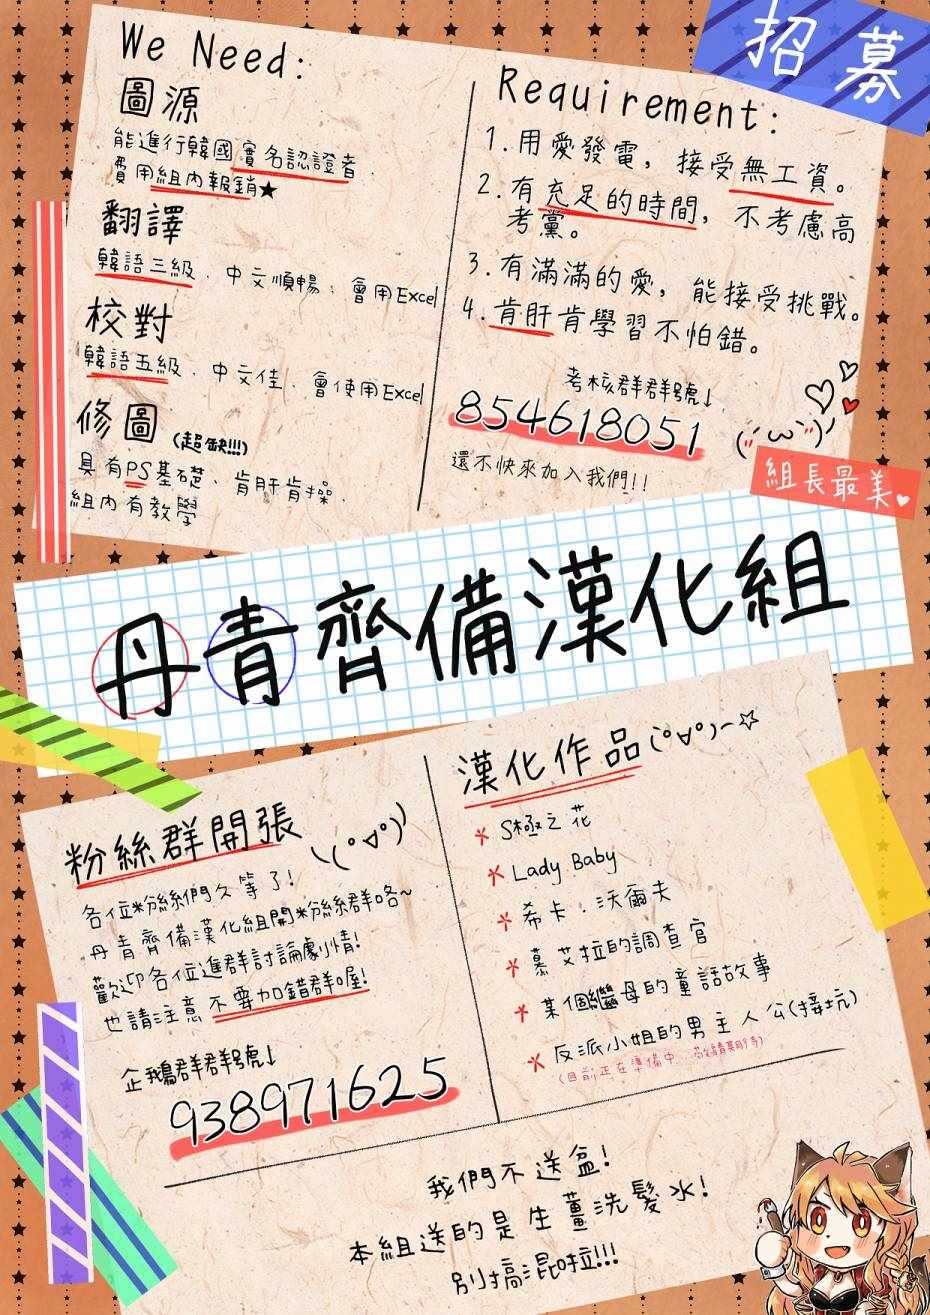 招募
We Need:
圖源
能進行韓國實名認證者、
費用組內報銷★
翻譯
韓語三級、中文順暢、會用Excel
校對
韓語五級、中文佳、會使用Excel
修圖(超缺!!!)
具有PS基礎、肯肝肯操、
組內有教學
Requirement:
1.用愛發電，接受無工資。
2.有充足的時間，不考慮高
考黨。
3.有滿滿的愛，能接受挑戰。
4.肯肝肯學習不怕錯。
考核群群號↓
854618051
還不快來加入我們!!
組長最美♥
丹青齊備漢化組
粉絲群開張
各位粉絲們久等了!
丹青齊備漢化組開粉絲群咯~
歡迎各位進群討論劇情!
也請注意不要加錯群喔!
企鵝群群號↓
938971625
漢化作品(°∀°)~☆
*S極之花
*Lady Baby
*希卡·沃爾夫
*慕艾拉的調查官
*某個繼母的童話故事
*反派小姐的男主人公(接坑)
(目前正在準備中...敬請期待)
我們不送盒!
本組送的是生薑洗髮水!
別搞混啦!!!